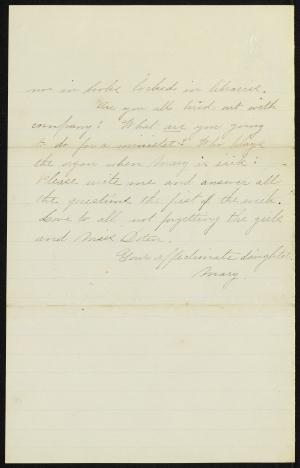 nor in books locked in libraries.
Are you all tired out with
company? What are you going
to do for a minister? Who plays
the organ when Mary is sick?
Please write me and answer all
the questions the first of the week.
Love to all not forgetting the girls
and Miss Doten.
Your affectionate daughter,
Mary.